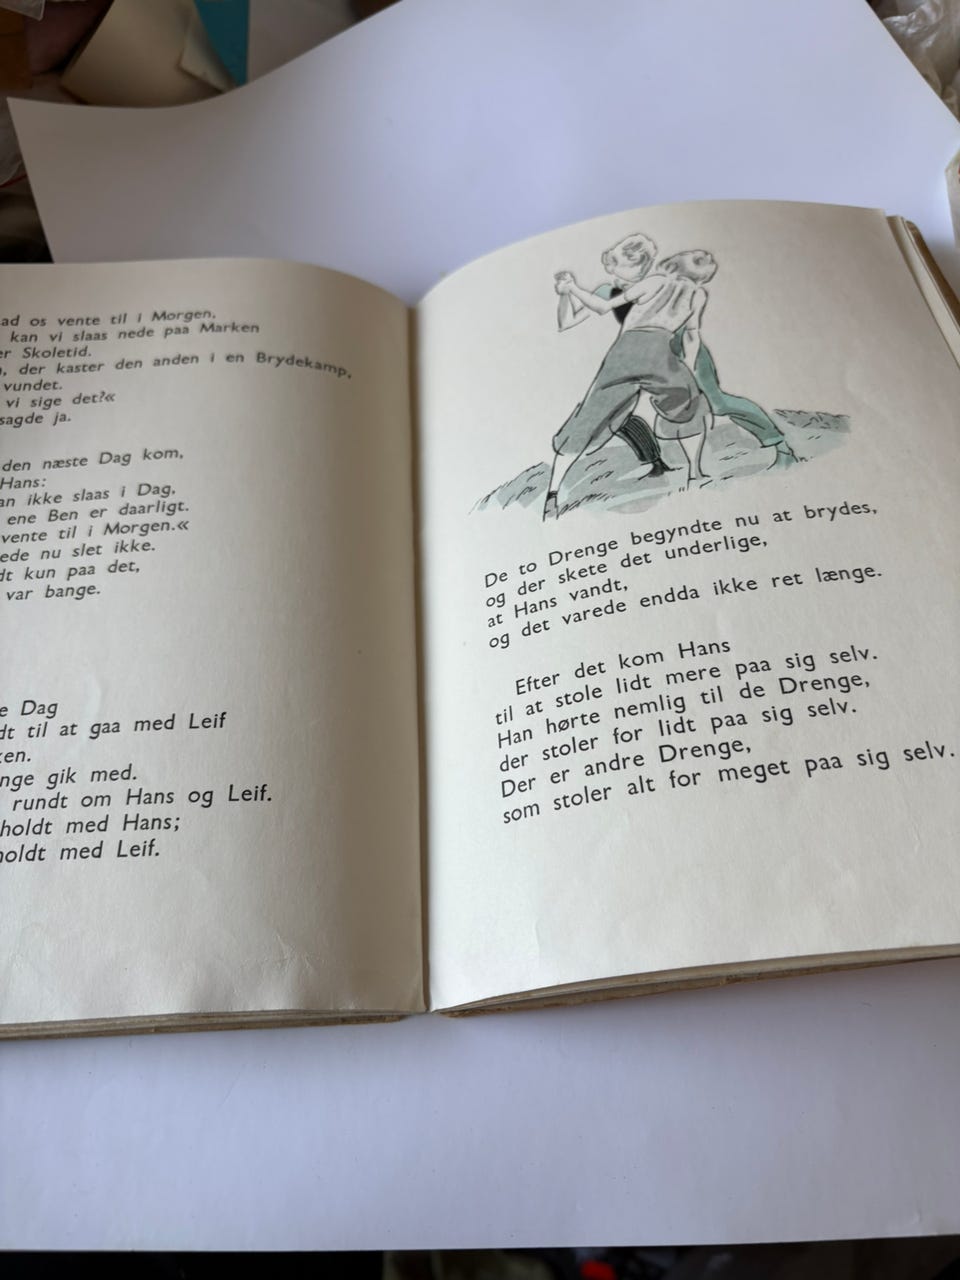 ad os vente til i Morgen,
kan vi slaas nede paa Marken
er Skoletid.
, der kaster den anden i en Brydekamp,
vundet.
vi sige det?«
sagde ja.
den næste Dag kom,
Hans:
an ikke slaas i Dag,
ene Ben er daarligt.
vente til i Morgen.«
ede nu slet ikke.
dt kun paa det,
var bange.
e Dag
dt til at gaa med Leif
ken.
nge gik med.
rundt om Hans og Leif.
holdt med Hans;
holdt med Leif.
De to Drenge begyndte nu at brydes,
og der skete det underlige,
at Hans vandt,
og det varede endda ikke ret længe.
Efter det kom Hans
til at stole lidt mere paa sig selv.
Han hørte nemlig til de Drenge,
der stoler for lidt paa sig selv.
Der er andre Drenge,
som stoler alt for meget paa sig selv.